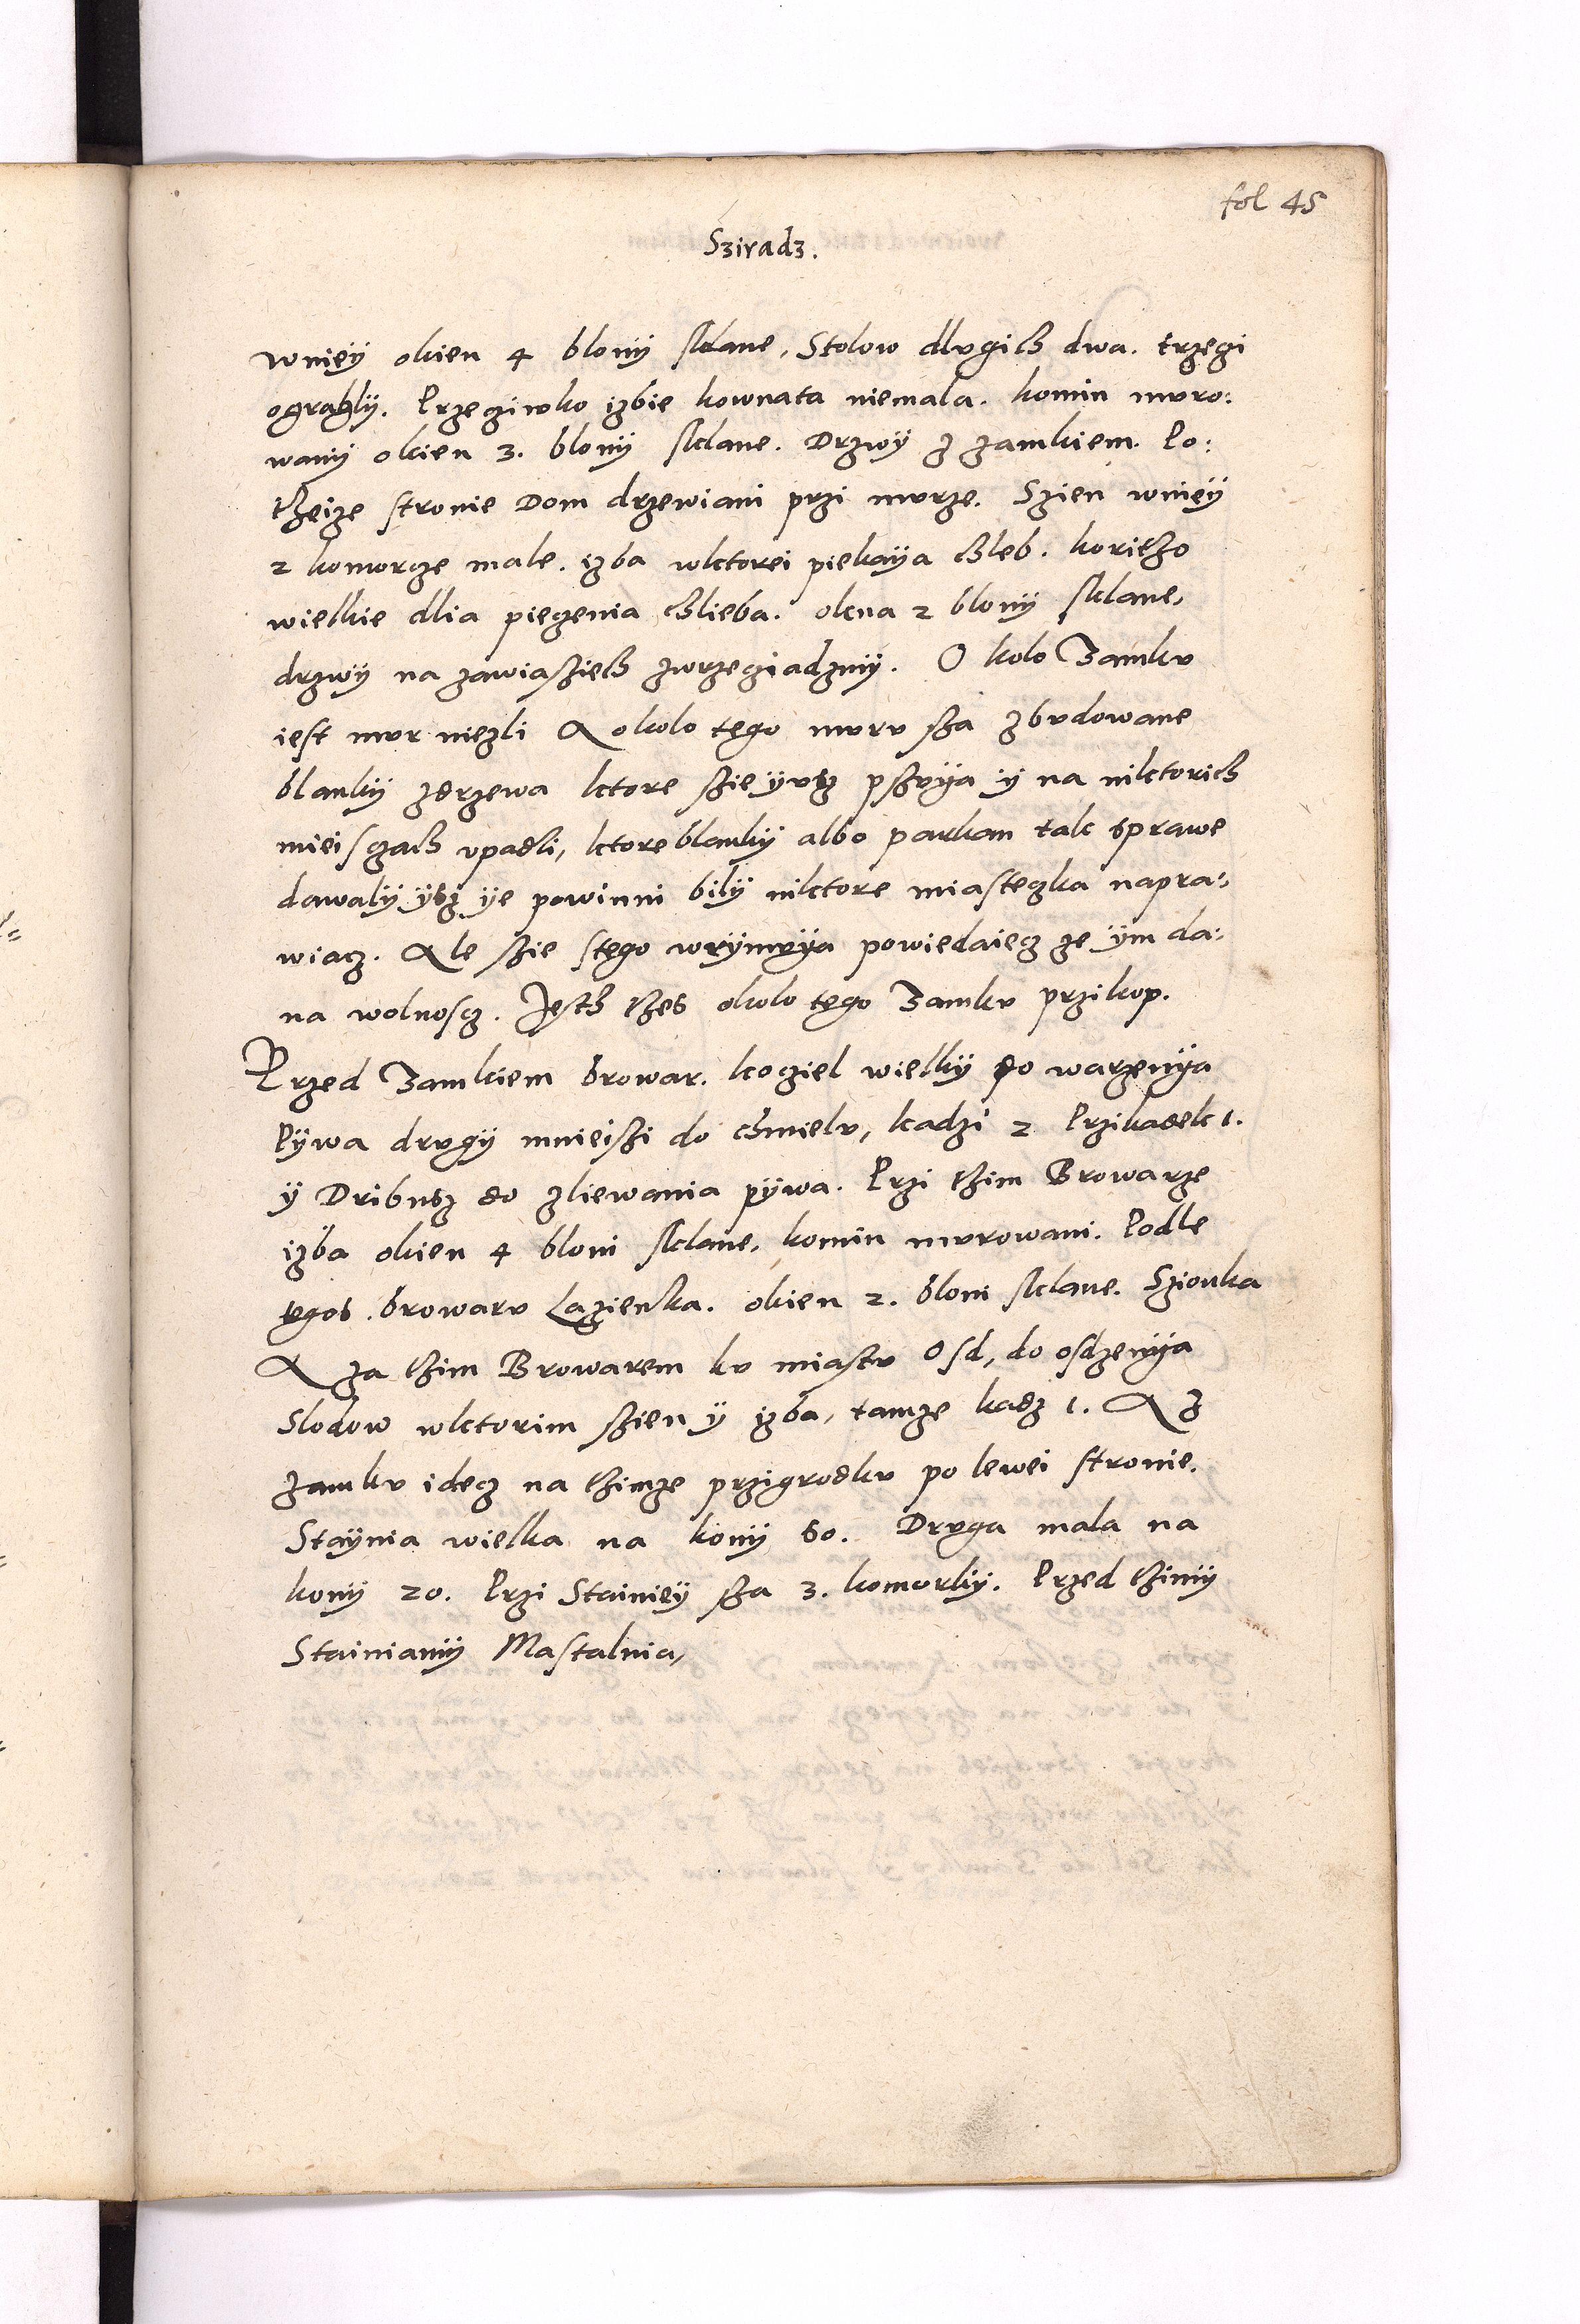 fol 45
Sziradz.
wniey okien 4 blony sklane, Stolow dlvgich dwa. trzegi
ograhly. Przeziwko izbie kownata niemala. komin mvro:
wany okien 3. blony sklane. Drzwÿ z zamkiem. Po:
thzeize stronie Dom drzewiani przi mvrze. Szien wnieÿ
2 komorze male. izba wktorei piekaÿa chleb. koritho
wielkie dlia piezenia chlieba. okna 2 blony sklane,
drzwÿ na zawiaszich zwrzegiadzmÿ. O kolo Zamkv
iest mvr niezli A okolo tego mvrv sza zbvdowane
blanky zdrzewa ktore szie ÿvsz pszvÿa ÿ na niktorich
mieisczach vpadli, ktore blanky albo parkan tak sprawe
dawaly ÿsz ÿe powinni bilÿ niktore miasteczka napra:
wiacz. Ale szie stego wÿmvÿa powiedaiecz ze ÿm da:
na wolnoscz. Jesth thes okolo tego Zamkv przikop.
Przed Zamkiem browar. koziel wielky do warzenÿa
Pÿwa drvgÿ mnieiszi do chmielv, kadzi 2 Przikadek 1.
ÿ Dribusz do zliewania pÿwa. Przi thim Browarze
izba okien 4 bloni sklane, komin mvrowani. Podle
tegos browarv Lazienka. okien 2. bloni sklane. Szionka
A za thim Browarem kv miastv Osd, do osdzenÿa
Slodow wktorim szien ÿ izba, tamze kadz 1. A z
zamkv idecz na thimze przigrodkv po lewei stronie.
Staÿnia wielka na konÿ 60. Drvga mala na
konÿ 20. Przi Stainieÿ sza 3. komorkÿ. Przed thimÿ
Stainiamÿ Mastalnia,